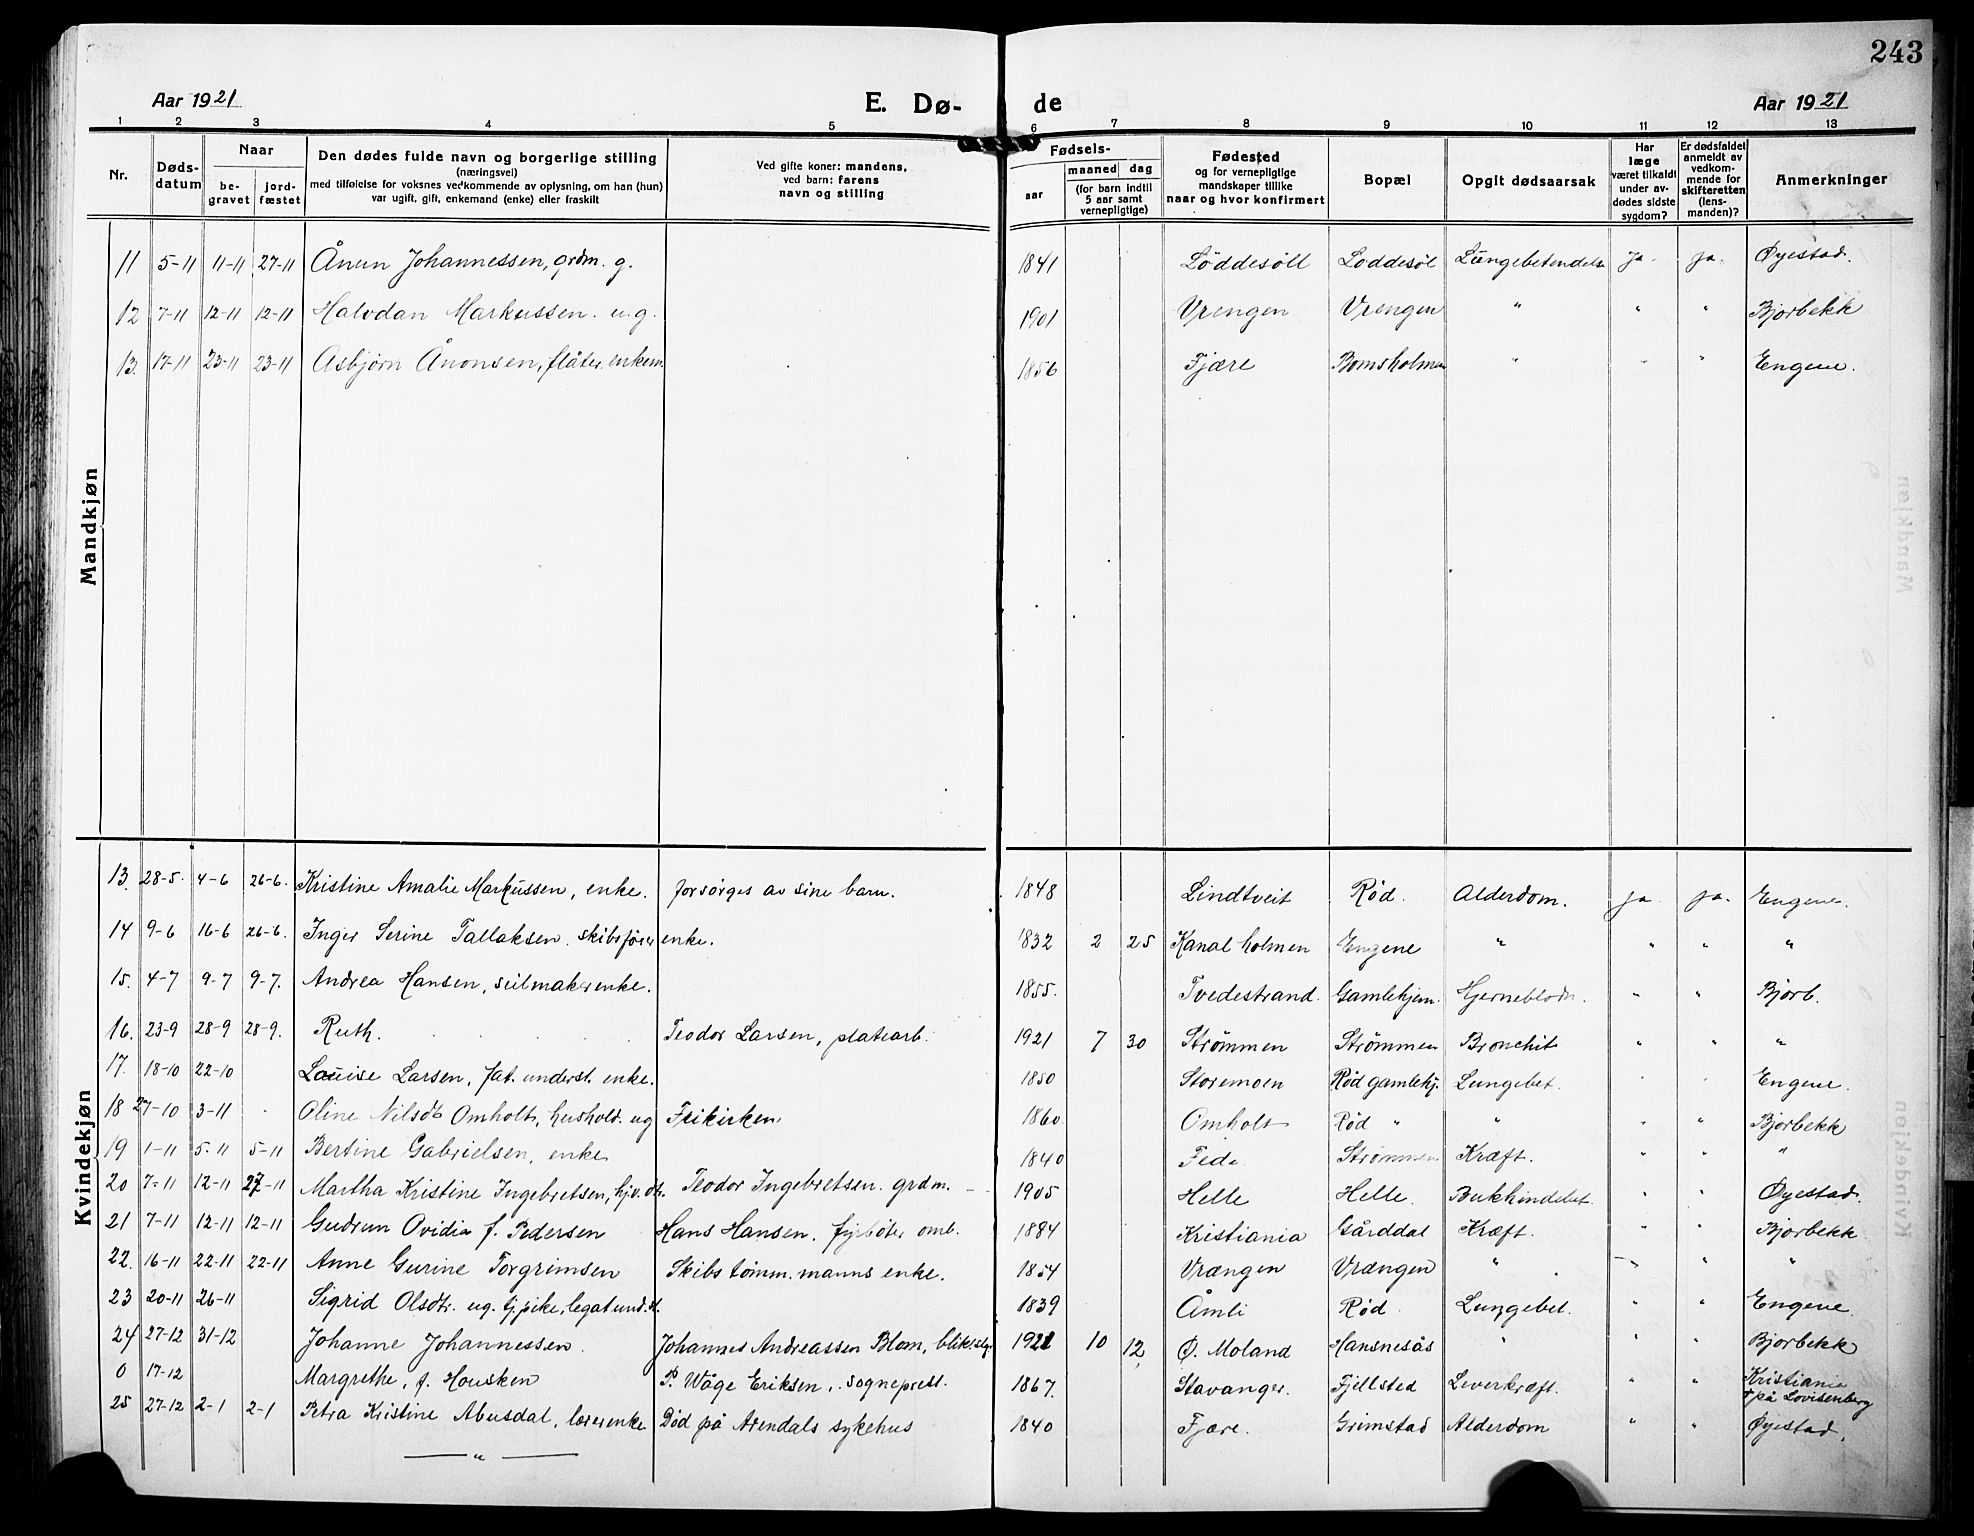 243
Aar 1921
E. Dø- de
Aar 1921
1 2 3 4 5 6 7 8 9 10 11 12 13
Nr.
Døds-
datum
Naar
be-
gravet
jord-
fæstet
Den dødes fulde navn og borgerlige stilling
(næringsvei)
med tilføielse for voksnes vedkommende av oplysning, om han (hun)
var ugift, gift, enkemand (enke) eller fraskilt
Ved gifte koner: mandens,
ved barn: farens
navn og stilling
Fødsels-
aar
maaned dag
(for barn indtil
5 aar samt
vernepligtige)
Fødested
og for vernepligtige
mandskaper tillike
naar og hvor konfirmert
Bopæl
Opgit dødsaarsak
Har
læge
været tilkaldt
under av-
dødes sidste
sygdom?
Er dødsfaldet
anmeldt av
vedkom-
mende for
skifteretten
(lens-
manden)?
Anmerkninger
Mandkjøn
11 5-11 11-11 27-11 Ånen Johannessen, grdm. g. 1841 Løddesöll Loddesøl Lungebetendels ja. ja. Øyestad.
12 7-11 12-11 12-11 Halvdan Markussen. u.g. 1901 Vrengen Vrengen " " " Bjorbekk
13. 17-11 23-11 23-11 Asbjørn Ånonsen, flåter, enkem 1856 Fjære Bomsholmen " " " Engene.
Kvindekjøn
13. 28-5. 4-6 26-6. Kristine Amalie Markussen, enke. forsørges av sine barn. 1848 Lindtveit Rød. Alderdom. ja. ja. Engene.
14 9-6 16-6 26-6. Inger Serine Tallaksen. skibsfører enke. 1832 2 25 Kanalholmen Engene " " " "
15. 4-7 9-7 9-7. Andrea Hansen, seilmakerenke. 1855. Tvedestrand. Gamlehjem. Hjerneblodn. " " Bjorb.
16. 23-9 28-9 28-9. Ruth. Teodor Larsen, platearb. 1921 7 30 Strømmen Strømmen Bronchit " " "
17. 18-10 22-10 Louise Larsen, fat. underst. enke. 1850 Storemoen Rød gamlehj. Lungebet. " " Engene.
18 27-10 3-11 Oline Nilsdt Omholt, hushold. ug Frikirken 1860 Omholt Rød " " " " Bjorbekk
19 1-11 5-11 5-11 Bertine Gabrielsen, enke 1840 Fede. Strømmen. Kræft. " " "
20 7-11 12-11 27-11 Martha Kristine Ingebretsen, hjv. dt. Teodor Ingebretsen. grdm. 1905 Helle Helle. Bukhindebet. " " Øyestad.
21 7-11 12-11 12-11 Gudrun Ovidia f. Pedersen Hans Hansen, fyrbøter omb. 1884 Kristiania Gårddal Kræft. " " Bjorbekk
22. 16-11 22-11 22-11 Anne Gurine Torgrimsen Skibstømm.manns enke. 1854 Vrængen Vrængen " " " "
23 20-11 26-11 Sigrid Olsdtr. ug. tj.pike, legatund.st. 1839 Åmli Rød Lungebet. " " Engene
24 27-12 31-12 Johanne Johannessen. Johannes Andreassen Blom, blik.slgr 1921 10 12 Ø. Moland Hansnesås " " " Bjorbekk
0 17-12 Margrethe, f. Housken P. Wåge Eriksen, sogneprest. 1867. Stavanger. Fjellsted Leverkræft. " " Kristiania
† på Lovisenberg
25 27-12 2-1 2-1 Petra Kristine Abusdal, lærerenke Død på Arendals sykehus 1840 Fjære. Grimstad Alderdom " " Øyestad.
— " —